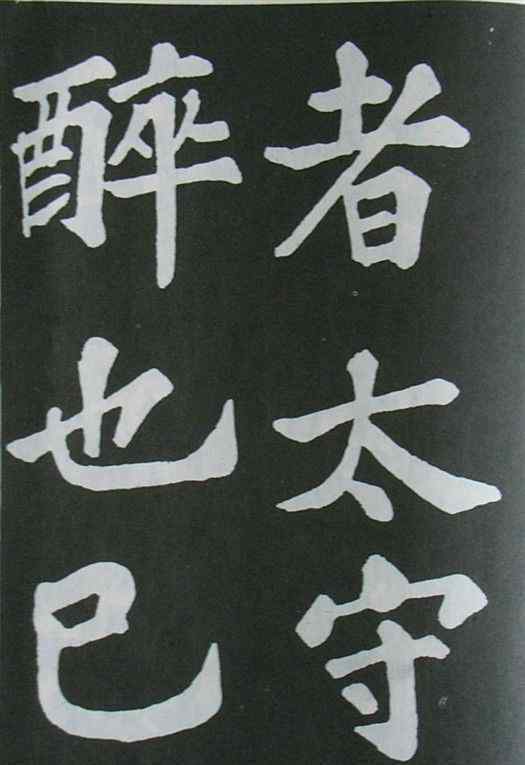 者太守
醉也已